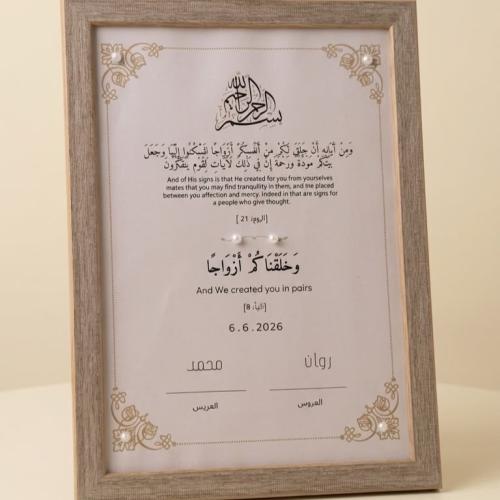 بسم الله الرحمن الرحيم
وَمِنْ آيَاتِهِ أَنْ خَلَقَ لَكُمْ مِنْ أَنْفُسِكُمْ أَزْوَاجًا لِتَسْكُنُوا إِلَيْهَا وَجَعَلَ
بَيْنَكُمْ مَوَدَّةً وَرَحْمَةً إِنَّ فِي ذَلِكَ لَآيَاتٍ لِقَوْمٍ يَتَفَكَّرُونَ
And of His signs is that He created for you from yourselves
mates that you may find tranquility in them, and he placed
between you affection and mercy. Indeed in that are signs for
a people who give thought.
[الروم: 21 ]
وَخَلَقْنَاكُمْ أَزْوَاجًا
And We created you in pairs
[النبأ: 8]
6.6.2026
روان
محمد
العروس
العريس